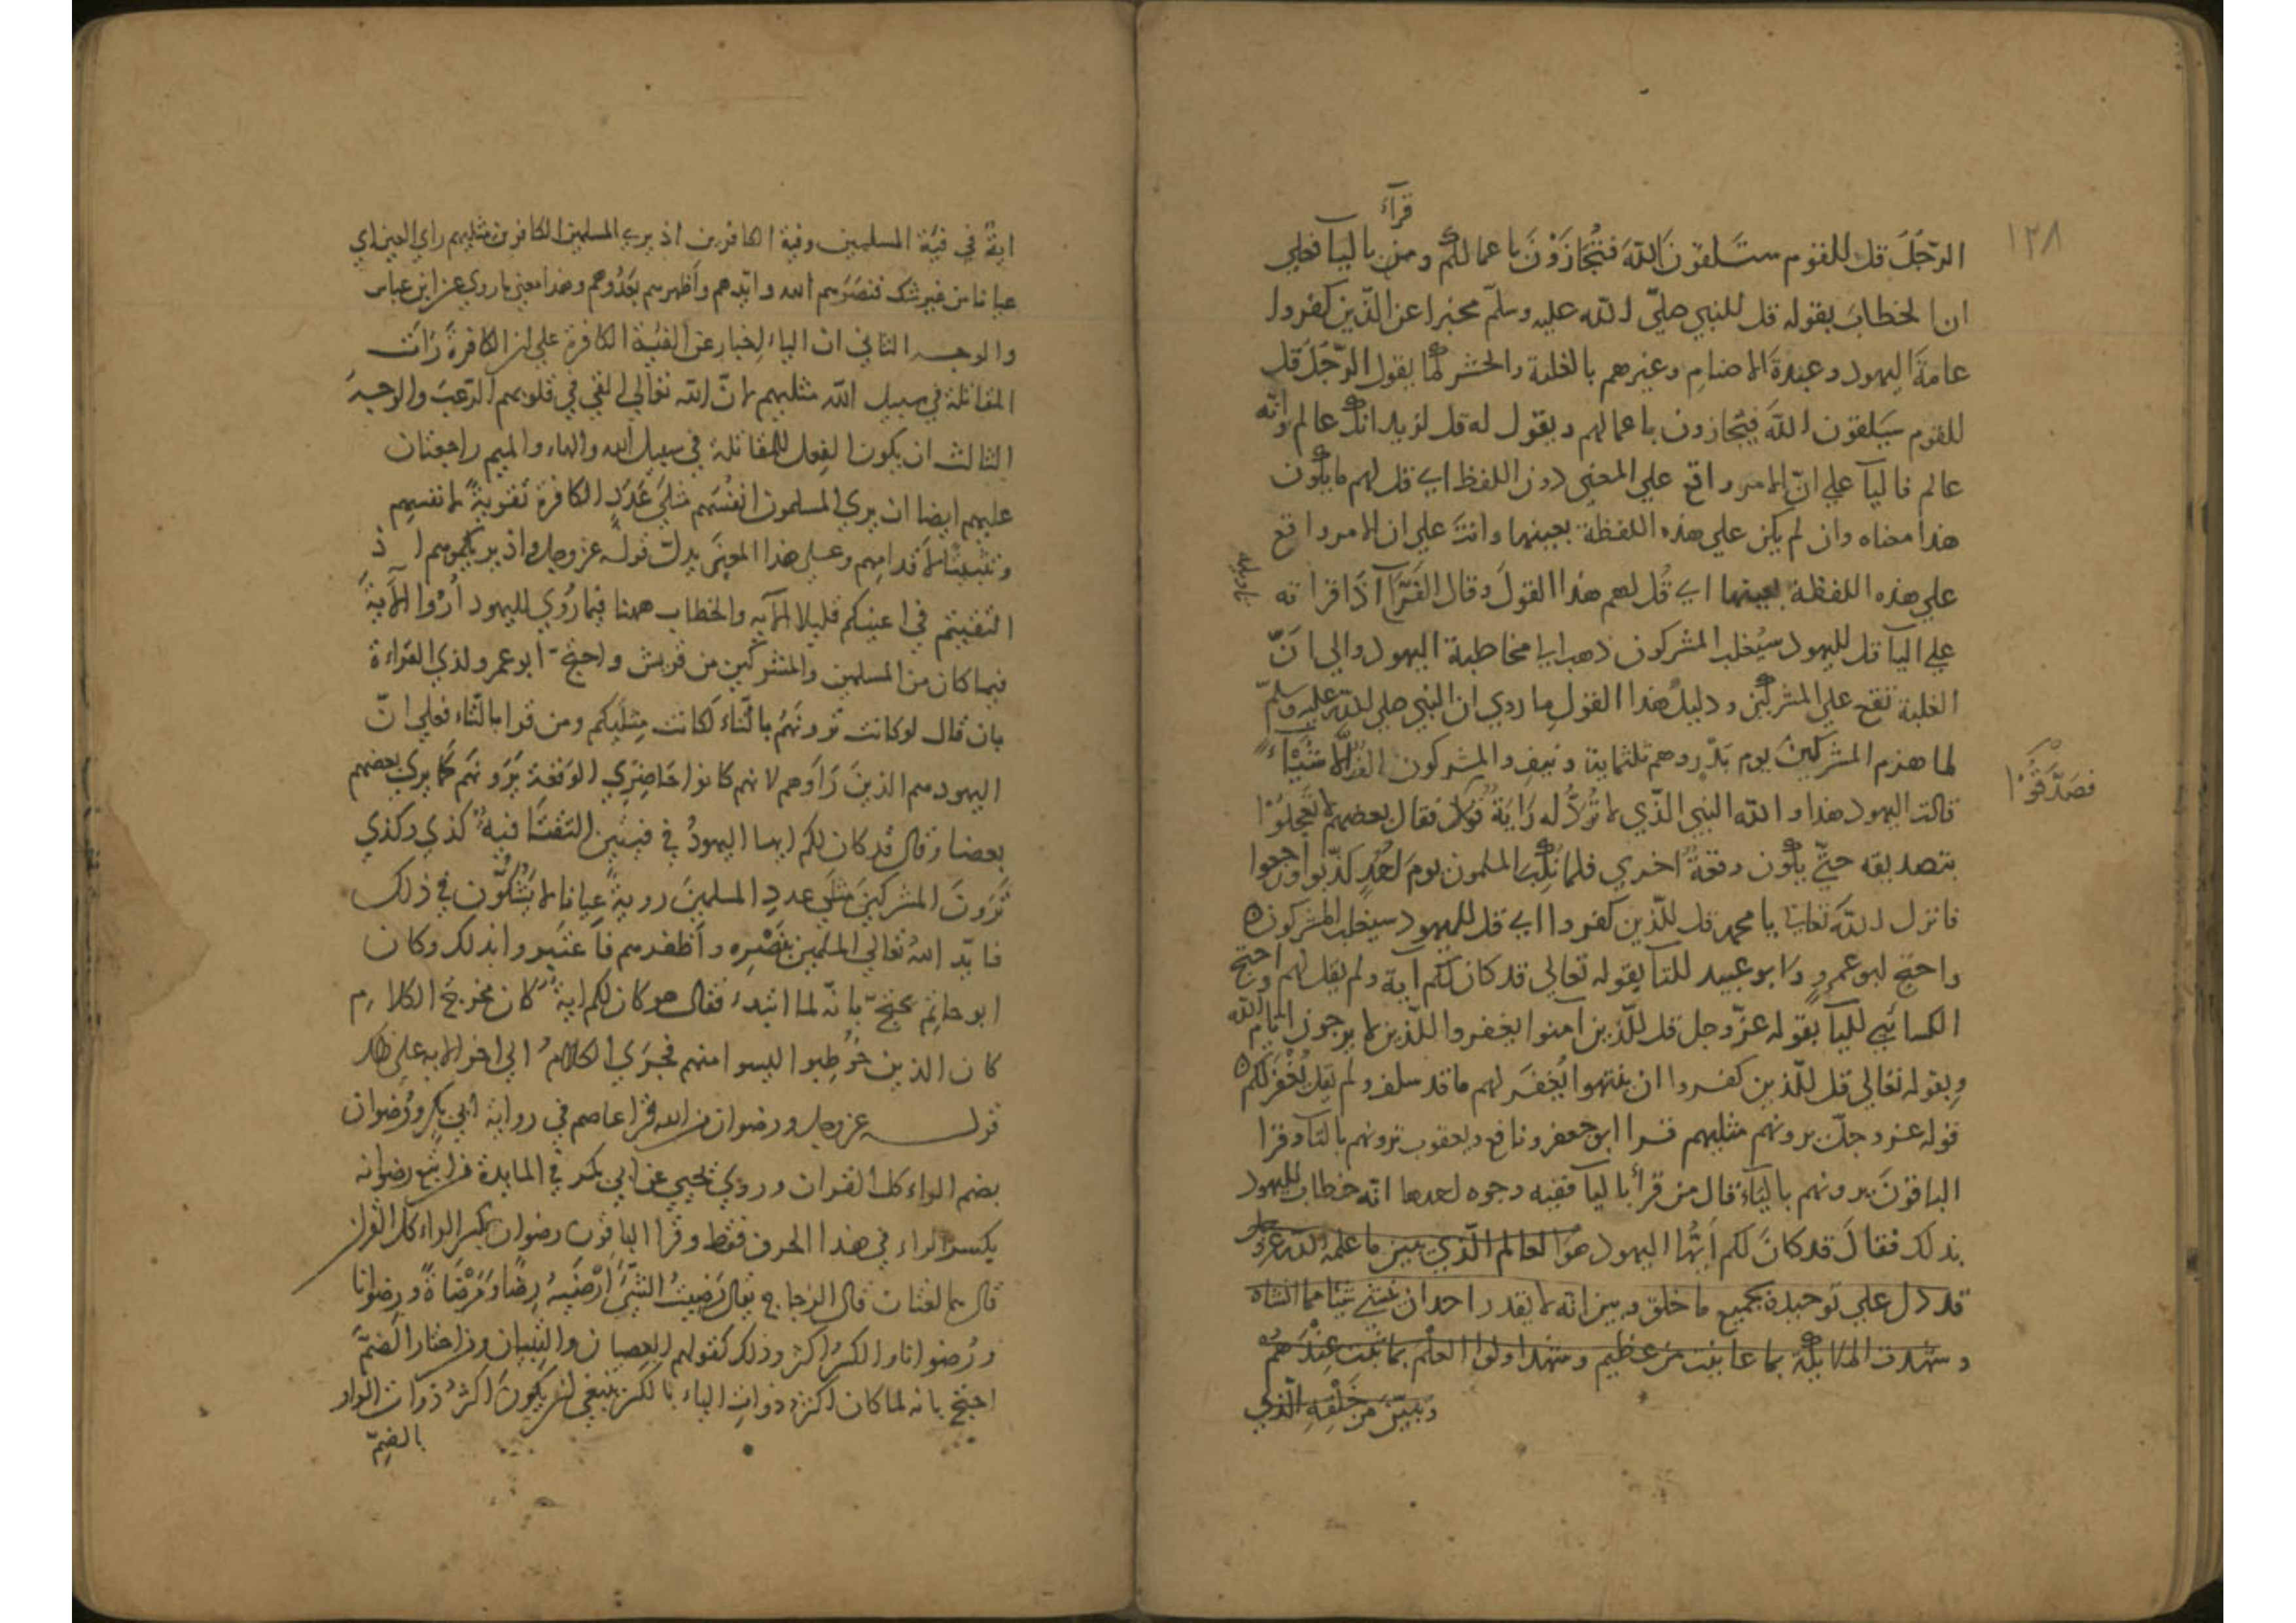 ١٢٨
قرآء
الرّجُلَ قل للقوم ستَلقَونَ اللّهَ فتُجَازَوْنَ باعمالكم ومن باليآ فعلي
ان الخطابَ بقوله قل للنبي صلّي اللّه عليه وسلّم مخبرا عن الّذين كفروا
عامةَ اليهود وعبدةَ الاصنام وغيرهم بالغلبة والحشر كما يقول الرّجُلَ قل
للقوم سَيَلقَون اللّهَ فيُجازون باعمالهم ويقول له قل لزيد انك عالم وانّه
عالم فاليآ علي انّ الامر واقع علي المعني دون اللفظ اي قل لهم ما يكون
هذا معناه وان لم يكن علي هذه اللفظة بعينها وانتَ علي ان الامر واقع
علي هذه اللفظة بعينها اي قُل لهم هذا القولَ وقال الفَرّآ اذا قراته
علي اليآ قل لليهود سيُغلب المشركون ذهب الي مخاطبة اليهود والي انّ
الغلبة تقع علي المشركين ودليل هذا القول ما روي ان النبي صلي اللّه عليه وسلّم
لما هزم المشركينَ يوم بَدْر وهم ثلثماية ونيف والمشركون الف الّا شَيْاءً
فصَدَّقَوْا
قالت اليهود هذا واللّه النبي الّذي لا تُرَدُّ له رَايَةٌ فقال بعضهم لا تَعجَلوْا
بتصديقه حتّي يكون وقعةٌ اخري فلما نُكب المسلمون يومَ اُحُدٍ كذّبوا
فانزل اللّه تعالي يا محمد قل للّذين كفروا اي قل لليهود سيغلب المشركون
واحتج ابو عمرو وابو عبيد للتآ بقوله تعالي قد كان لكم آية ولم يقل لهم واحتج
الكسائي لليآ بقوله عزّ وجل قل للّذين امنوا يغفروا للّذين لا يرجون ايّام اللّه
وبقوله تعالي قل للّذين كفروا ان ينتهوا يُغفَر لهم ما قد سلف ولم يقل يُغْفَرْ لكم
قوله عز وجلّ يرونهم مثليهم قرا ابو جعفر ونافع ويعقوب ترونهم بالتآ وقرا
الباقونَ يرونهم باليَاء قال من قرأ باليآ ففيه وجوه احدها انّه خطاب لليهود
بذلك فقالَ قد كانَ لكم أيّها اليهود هوَ العالم الّذي بين ما علمه اللّه عز وجل
قد دل علي توحيده بجميع ما خلق وبين انه لا يقدر احد ان يُنشئ شيئا مما انشاه
وشهدت الملايكة بما عاينت من عظيم وشهد اولوا العلم بما ثبت عِنْدَهُمْ
وتبيّن من خَلْقِهِ الّذي
ايةٌ في فيَة المسلمين وفية الكافرين اذ يري المسلمين الكافرين مثليهم راي العين اي
عيانا من غير شك فنصَرَهم الله وايّدهم واظهرهم بعَدُوهم وهذا معني ما روي عن ابن عباس
والوجه الثاني ان الياء لاخبار عن الفيَة الكافرة علي ان الكافرةَ رَاَت
المقاتلة في سبيل اللّه مثليهم لانّ اللّه تعالي القي في قلوبهم الرّعبَ والوجه
الثالث ان يكون الفِعل للمقاتلة في سبيل الله والهاء والميم راجعتان
عليهم ايضا ان يري المسلمون انفُسَهم مثلَيْ عَدَدِ الكافرة تقويةً لانفسهم
وتثبيتًا لاَقدامِهم وعلي هذا المعنَي يدلّ قوله عز وجل واذ يريكموهم اذ
التقيتم في اعينكم قليلا الآيه والخطاب ههنا فيما رُوي لليهود اُرُوا الاَيةَ
فيما كان من المسلمين والمشركين من قريش واحتجّ ابو عمرو لذي القراءة
بان قال لو كانت ترونَهُم بالتّاء لكانت مِثلَيكم ومن قرا بالتّاء فعلي انّ
اليهود هم الذينَ رَاَوهم لانهم كانوا حَاضِرِي الوَقعة يَرَونهَم كما يري بعضهم
بعضا وقال قد كان لكم ايها اليهودُ في فيتين التقتَا فيه كذي وكذي
تَرَونَ المشركينَ مثلَي عددِ المسلمينَ رويةً عِيانا لا يَشُكُّون في ذلك
فايّد اللهُ تعالي المسلمين بنَصْرِه واَظفرهم فاعتبروا بذلك وكان
ابو حاتِم يحتجّ بانّه لما ابتدء فقال هو كان لكم ايةٌ كان مخرجُ الكلام
كان الذين خُوطِبوا ليسوا منهم فجرَي الكلامُ الي اخر الايه علي ذلك
قوله عز وجل ورضوان من الله قرا عاصم في رواية ابي بكر ورُضوان
بضم الراء كل القران وروي يحيي عن ابي بكر في المايدة من اتبع رضوانه
بكسر الراء في هذا الحرف فقط وقرا الباقون رضوان بكسر الراء كلّ القران
قال هما لغتان قال الزجاج يقال رَضِيتُ الشّيَ اَرْضَيه رِضًا ومَرْضَاةً ورِضوانا
ورُضوانا والكسرُ اكثر وذلك كقولهم العِصيان والنِسيان ومن اختار الضمَّ
احتجّ بانه لما كان اكثر ذوات الياء بالكسر ينبغي ان يكونَ اكثرُ ذوات الواو
بالضمّ